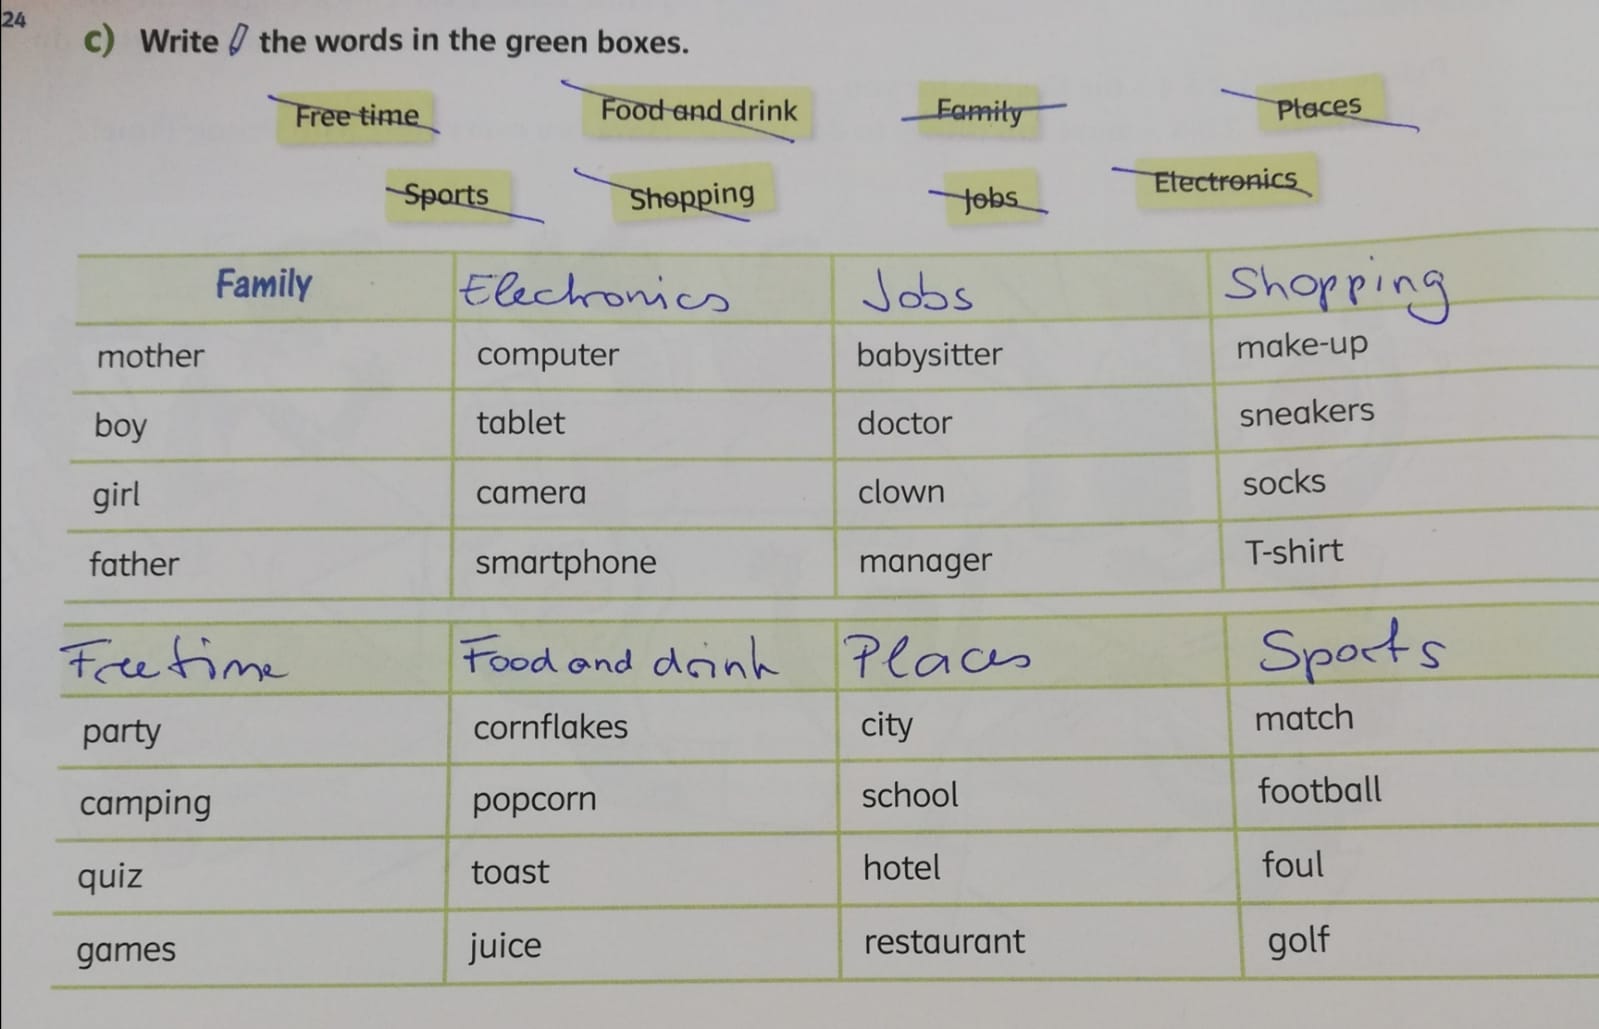 24
c) Write the words in the green boxes.
Free time Food and drink Family Places
Sports Shopping Jobs Electronics
Family Electronics Jobs Shopping
mother computer babysitter make-up
boy tablet doctor sneakers
girl camera clown socks
father smartphone manager T-shirt
Free time Food and drink Places Sports
party cornflakes city match
camping popcorn school football
quiz toast hotel foul
games juice restaurant golf